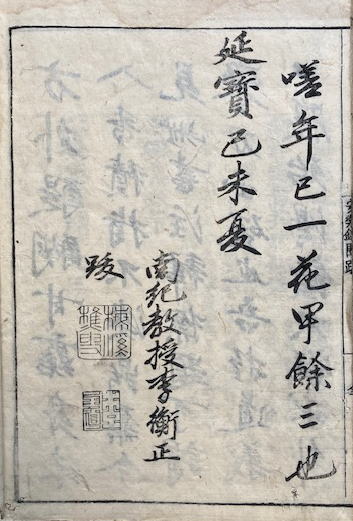 嗟年已一花甲餘三也
延寶己未夏
南紀教授李衡正
跋